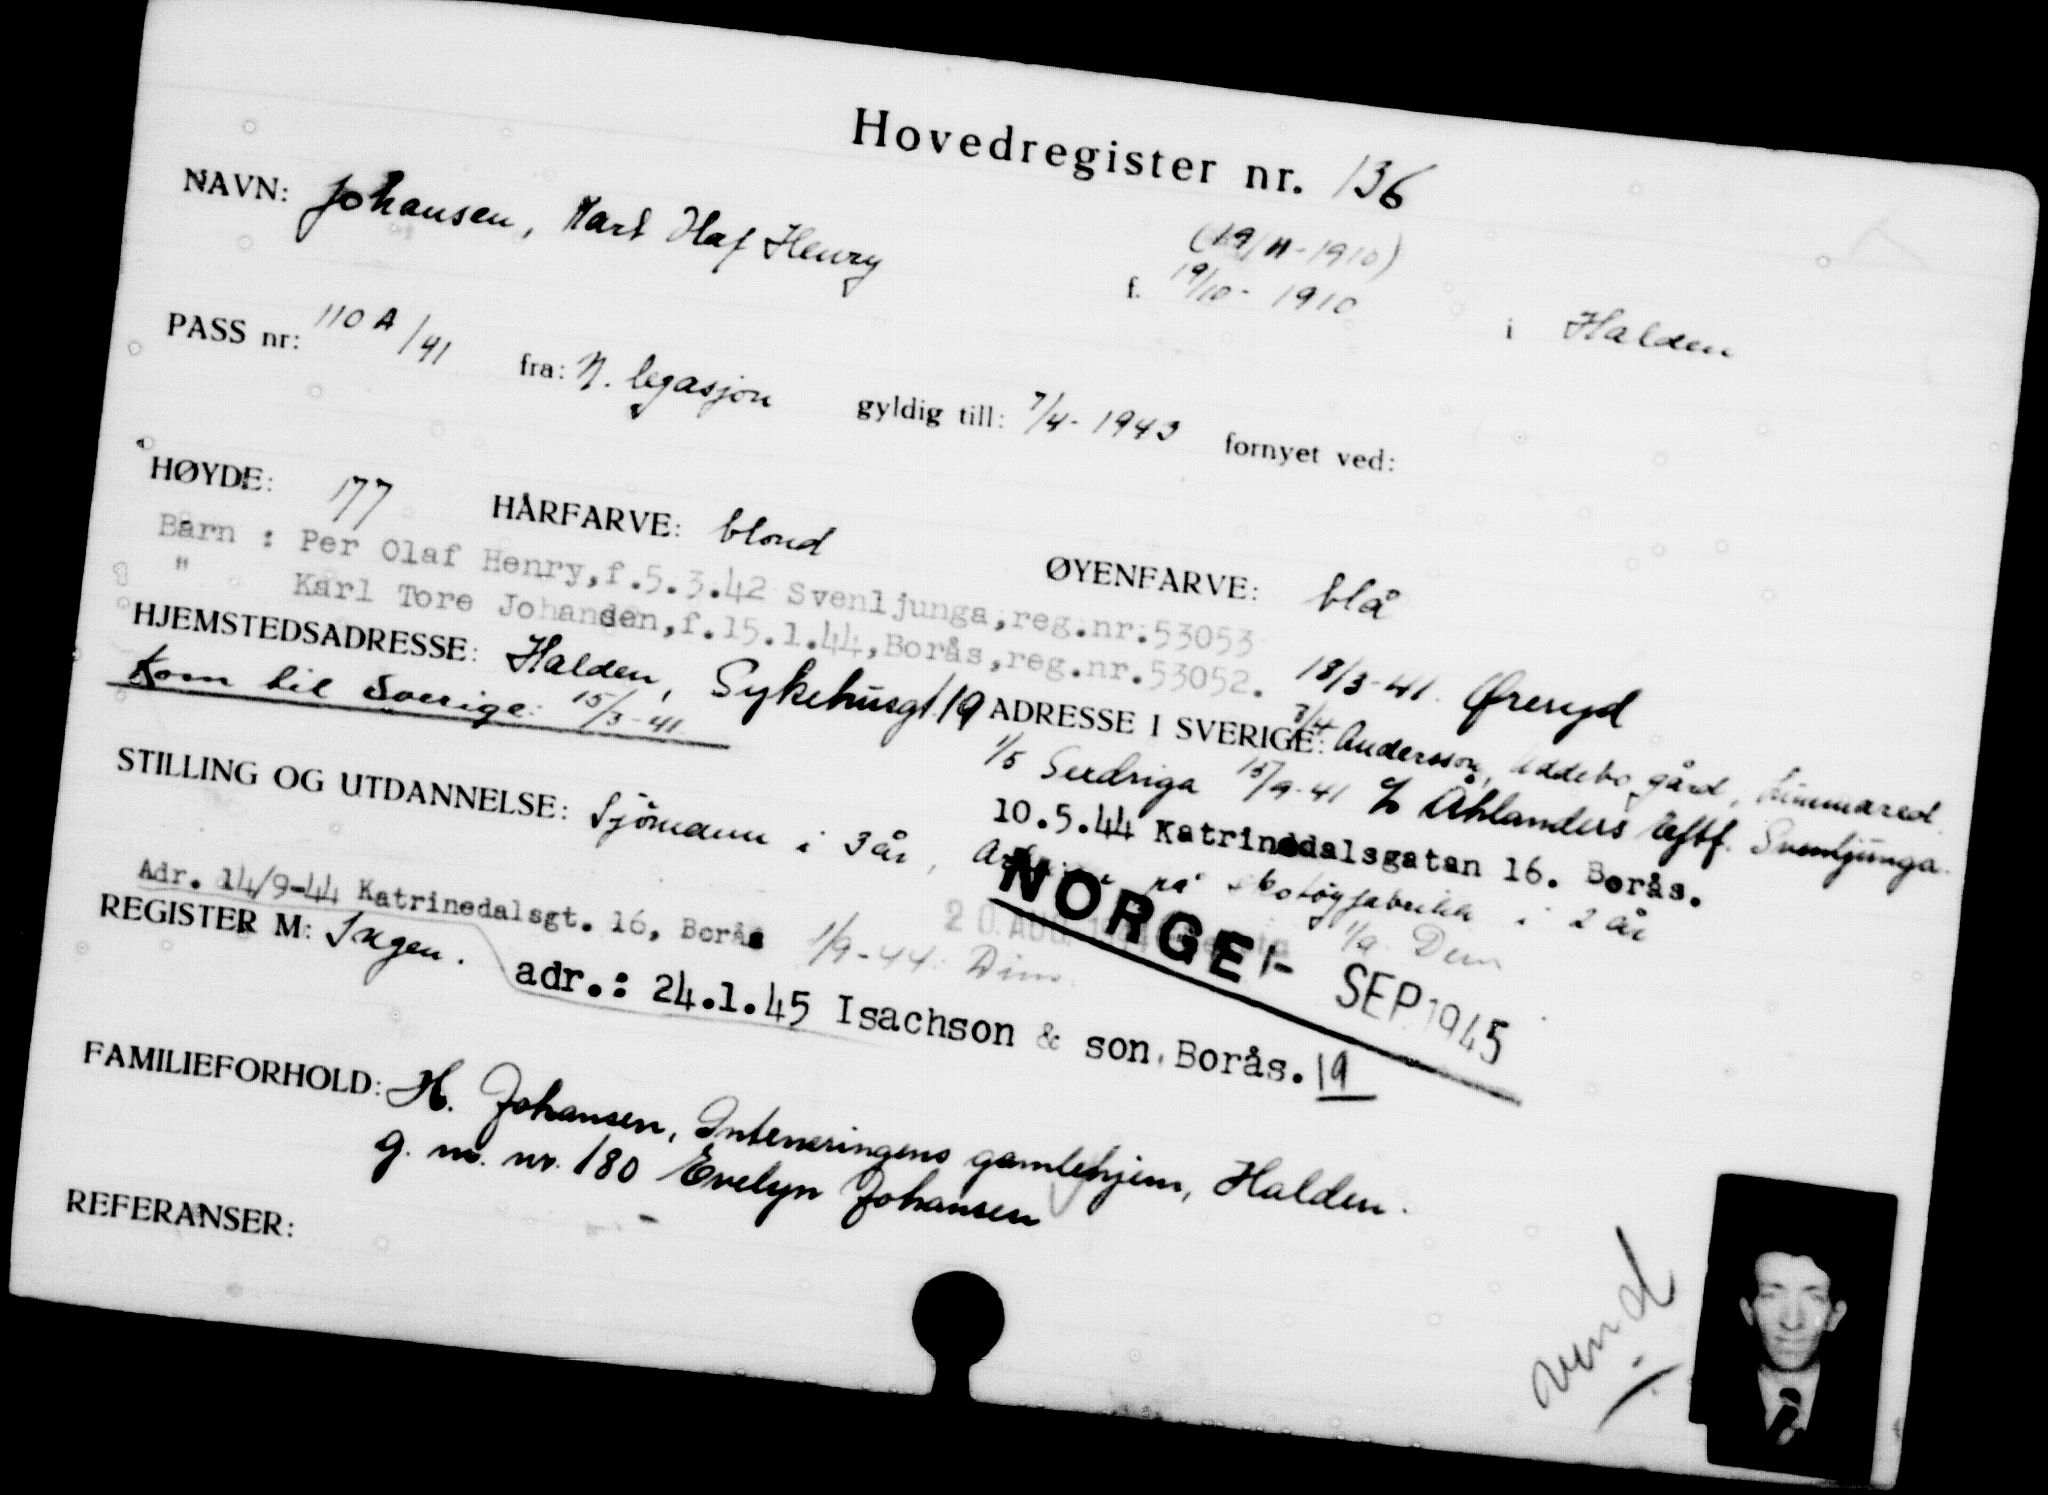 Hovedregister nr. 136
NAVN: Johansen, Karl Olaf Henry
(19/11-1910)
f. 19/10-1910 i Halden
PASS nr: 110A/41 fra: N. legasjon gyldig till: 7/4-1943 fornyet ved:
HØYDE: 177 HÅRFARVE: blond ØYENFARVE: blå
Barn : Per Olaf Henry,f.5.3.42 Svenljunga,reg.nr.53053
" Karl Tore Johansen,f.15.1.44,Borås,reg.nr.53052.
HJEMSTEDSADRESSE: Halden, Sykehusgt. 19
Kom til Sverige: 15/3-41
18/3-41. Øreryd
ADRESSE I SVERIGE: 8/4 Andersson, Uddebo gård, Limmared.
1/5 Sexdriga 15/9-41 c/o Åhlanders Eftf. Svenljunga.
10.5.44 Katrinedalsgatan 16. Borås.
STILLING OG UTDANNELSE: Sjömann i 3 år, Arbeider på skotøyfabrikk i 2 år
Adr. 14/9-44 Katrinedalsgt. 16, Borås 1/9-44. Dim.
20 AUG 1/9 Dim
NORGE 1- SEP. 1945
REGISTER M: Ingen.
adr.: 24.1.45 Isachson & son, Borås. 19
FAMILIEFORHOLD: H. Johansen, Interneringens gamlehjem, Halden.
g. m. nr. 180 Evelyn Johansen
REFERANSER:
vend